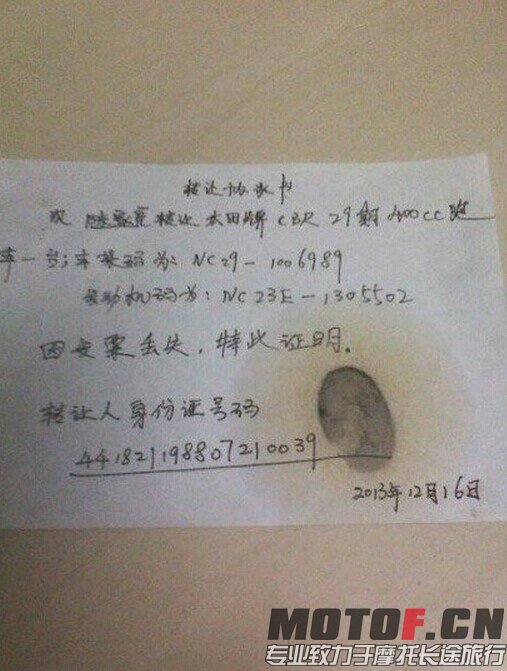 转让协议书
我 转让本田牌 CBR 29期 400CC 跑
车一台;车架码为: NC29-1006989
发动机码为: NC23E-1305502
因发票丢失, 特此证明.
转让人身份证号码
441821198807210039
2013年12月16日
MOTOF.CN
专业致力于摩托长途旅行